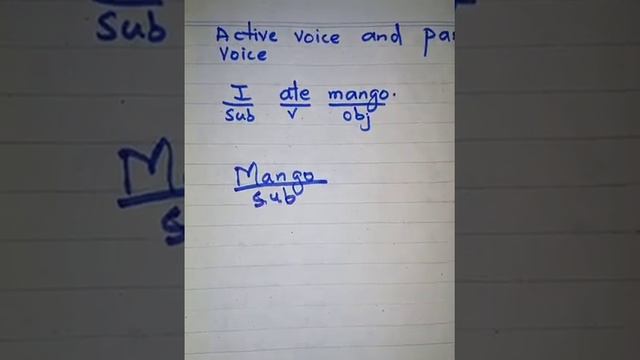 Active voice and pa
voice
I ate mango.
sub v obj
Mango
sub